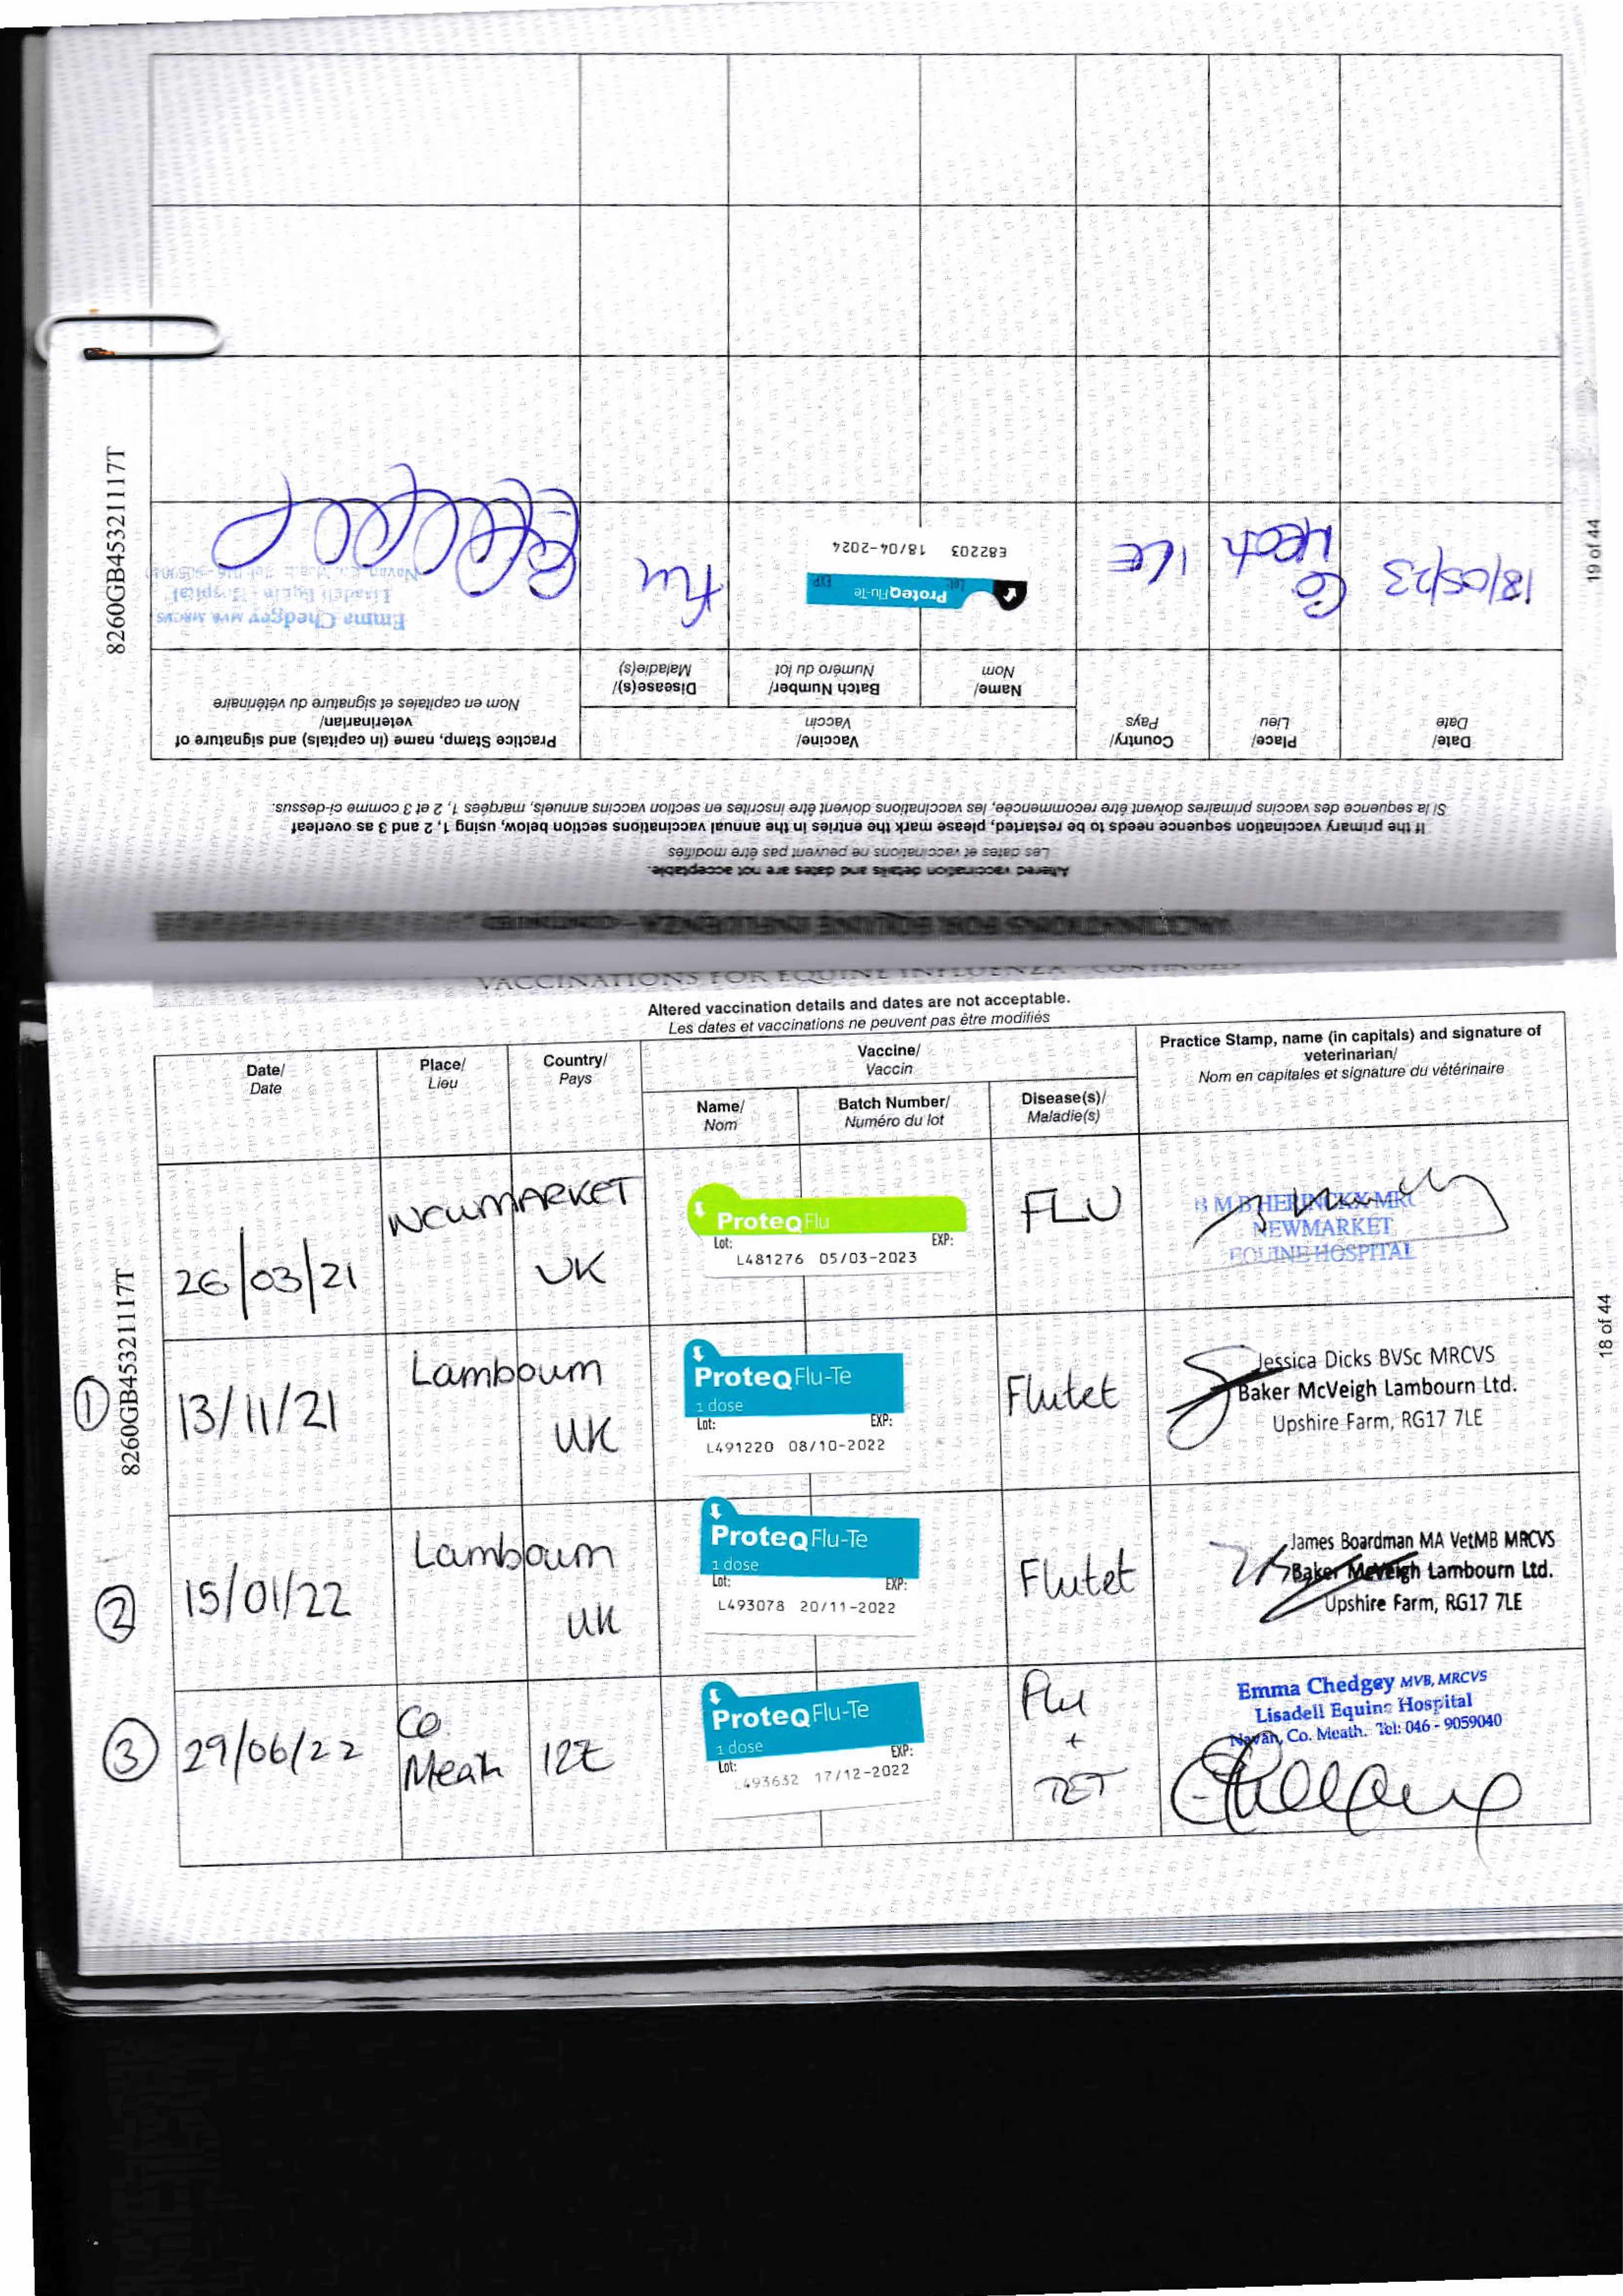 VACCINATIONS FOR EQUINE INFLUENZA - CONTINUED
Altered vaccination details and dates are not acceptable.
Les dates et vaccinations ne peuvent pas être modifiés
Date/
Date
Place/
Lieu
Country/
Pays
Vaccine/
Vaccin
Name/
Nom
Batch Number/
Numéro du lot
Disease(s)/
Maladie(s)
Practice Stamp, name (in capitals) and signature of
veterinarian/
Nom en capitales et signature du vétérinaire
26/03/21
NEWMARKET
UK
ProteqFlu
Lot: EXP:
L481276 05/03-2023
FLU
NEWMARKET
EQUINE HOSPITAL
①
13/11/21
Lambourn
UK
ProteqFlu-Te
1 dose
Lot: EXP:
L491220 08/10-2022
Flutet
Jessica Dicks BVSc MRCVS
Baker McVeigh Lambourn Ltd.
Upshire Farm, RG17 7LE
②
15/01/22
Lambourn
UK
ProteqFlu-Te
1 dose
Lot: EXP:
L493078 20/11-2022
Flutet
James Boardman MA VetMB MRCVS
Baker McVeigh Lambourn Ltd.
Upshire Farm, RG17 7LE
③
29/06/22
Co
Meath
IRE
ProteqFlu-Te
1 dose
Lot: EXP:
L493632 17/12-2022
Flu
+
TET
Emma Chedgey MVB, MRCVS
Lisadell Equine Hospital
Navan, Co. Meath. Tel: 046 - 9059040
8260GB45321117T
18 of 44
VACCINATIONS FOR EQUINE INFLUENZA - CONTINUED
Altered vaccination details and dates are not acceptable.
Les dates et vaccinations ne peuvent pas être modifiés
If the primary vaccination sequence needs to be restarted, please mark the entries in the annual vaccinations section below, using 1, 2 and 3 as overleaf
Si la sequence des vaccins primaires doivent être recommencée, les vaccinations doivent être inscrites en section vaccins annuels, marqées 1, 2 et 3 comme ci-dessus.
Date/
Date
Place/
Lieu
Country/
Pays
Vaccine/
Vaccin
Name/
Nom
Batch Number/
Numéro du lot
Disease(s)/
Maladie(s)
Practice Stamp, name (in capitals) and signature of
veterinarian/
Nom en capitales et signature du vétérinaire
18/05/23
Co
Meath
IRE
ProteqFlu-Te
Lot: EXP
E82203 18/04-2024
Flu
Emma Chedgey MVB MRCVS
Lisadell Equine Hospital
8260GB45321117T
19 of 44